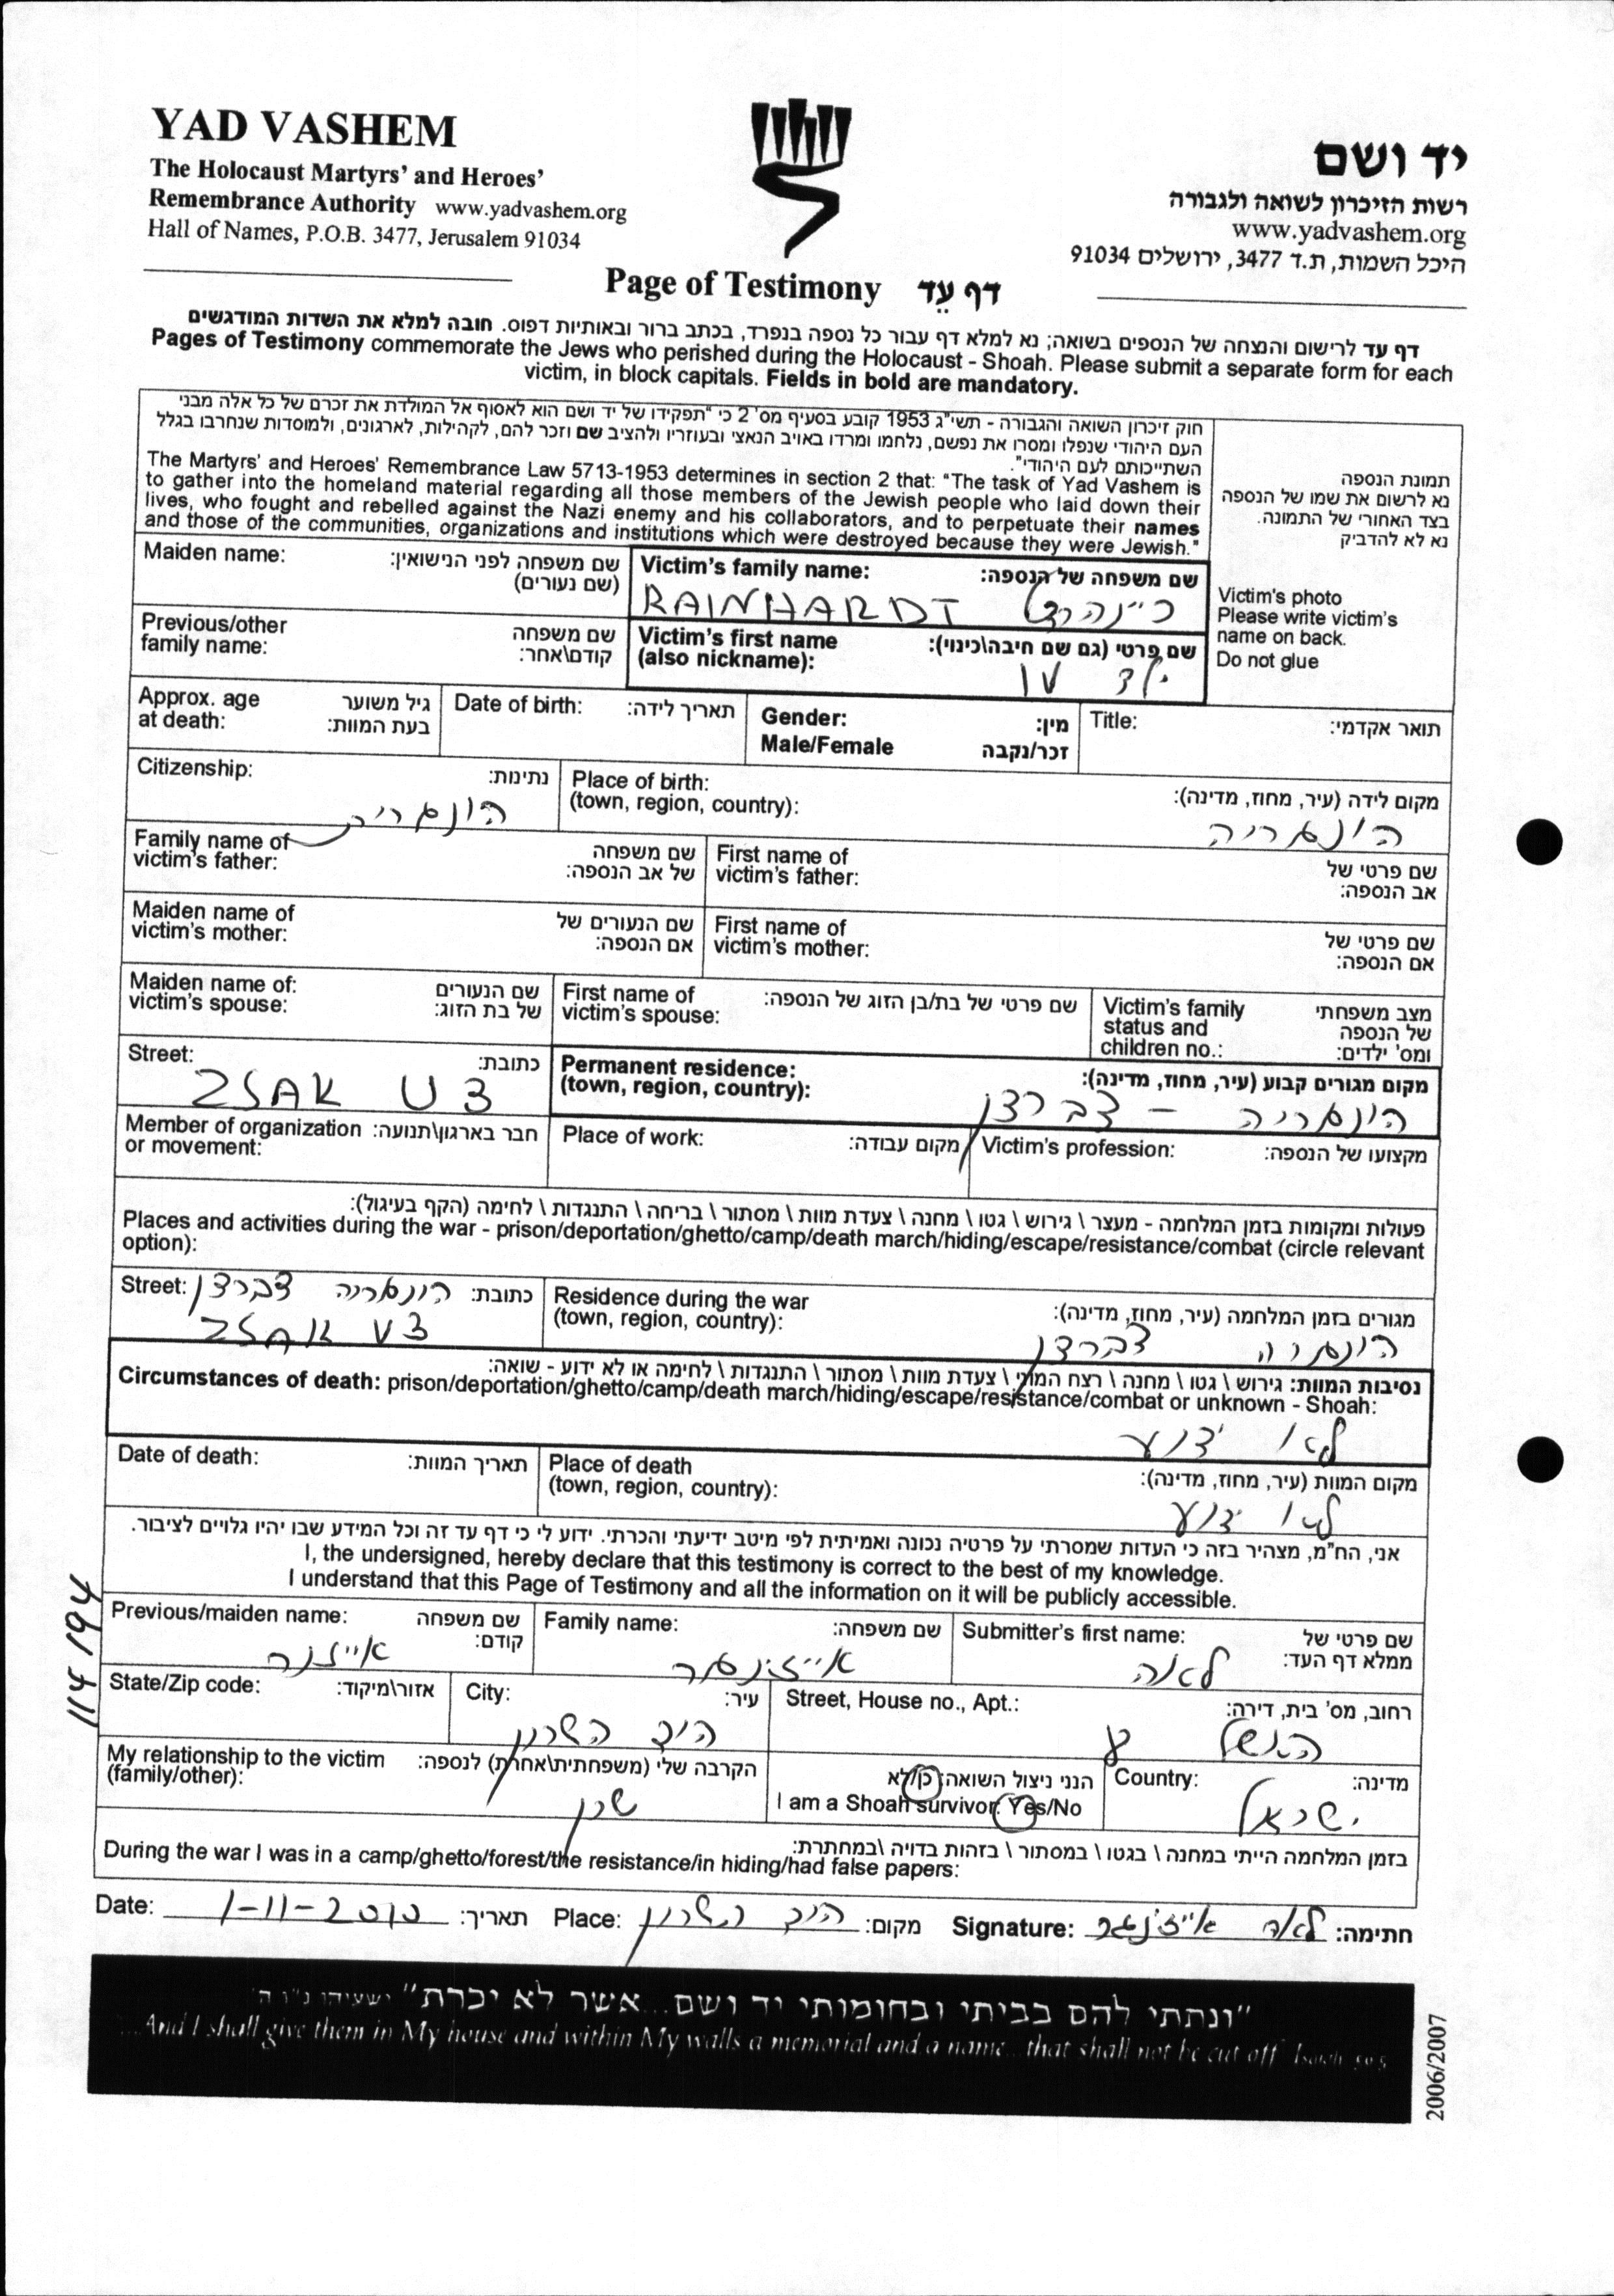 YAD VASHEM
The Holocaust Martyrs' and Heroes'
Remembrance Authority www.yadvashem.org
Hall of Names, P.O.B. 3477, Jerusalem 91034
יד ושם
רשות הזיכרון לשואה ולגבורה
www.yadvashem.org
היכל השמות, ת.ד 3477, ירושלים 91034
Page of Testimony דף עֵד
דף עד לרישום והנצחה של הנספים בשואה; נא למלא דף עבור כל נספה בנפרד, בכתב ברור ובאותיות דפוס. חובה למלא את השדות המודגשים
Pages of Testimony commemorate the Jews who perished during the Holocaust - Shoah. Please submit a separate form for each
victim, in block capitals. Fields in bold are mandatory.
חוק זיכרון השואה והגבורה - תשי"ג 1953 קובע בסעיף מס' 2 כי "תפקידו של יד ושם הוא לאסוף אל המולדת את זכרם של כל אלה מבני
העם היהודי שנפלו ומסרו את נפשם, נלחמו ומרדו באויב הנאצי ובעוזריו ולהציב שם וזכר להם, לקהילות, לארגונים, ולמוסדות שנחרבו בגלל
השתייכותם לעם היהודי".
The Martyrs' and Heroes' Remembrance Law 5713-1953 determines in section 2 that: "The task of Yad Vashem is
to gather into the homeland material regarding all those members of the Jewish people who laid down their
lives, who fought and rebelled against the Nazi enemy and his collaborators, and to perpetuate their names
and those of the communities, organizations and institutions which were destroyed because they were Jewish."
תמונת הנספה
נא לרשום את שמו של הנספה
בצד האחורי של התמונה.
נא לא להדביק
Victim's photo
Please write victim's
name on back.
Do not glue
Maiden name: שם משפחה לפני הנישואין:
(שם נעורים)
Victim's family name: שם משפחה של הנספה:
RAINHARDT ריינהרדט
Previous/other שם משפחה
family name: קודם\אחר:
Victim's first name שם פרטי (גם שם חיבה\כינוי):
(also nickname):
ילד
Approx. age גיל משוער
at death: בעת המוות:
Date of birth: תאריך לידה:
Gender: מין:
Male/Female זכר/נקבה
Title: תואר אקדמי:
Citizenship: נתינות:
הונגריה
Place of birth:
(town, region, country): מקום לידה (עיר, מחוז, מדינה):
הונגריה
Family name of שם משפחה
victim's father: של אב הנספה:
First name of שם פרטי של
victim's father: אב הנספה:
Maiden name of שם הנעורים של
victim's mother: אם הנספה:
First name of שם פרטי של
victim's mother: אם הנספה:
Maiden name of: שם הנעורים
victim's spouse: של בת הזוג:
First name of שם פרטי של בת/בן הזוג של הנספה:
victim's spouse:
Victim's family מצב משפחתי
status and של הנספה
children no.: ומס' ילדים:
Street: כתובת:
ZSAK U 3
Permanent residence: מקום מגורים קבוע (עיר, מחוז, מדינה):
(town, region, country):
הונגריה - דברצן
Member of organization חבר בארגון\תנועה:
or movement:
Place of work: מקום עבודה:
Victim's profession: מקצועו של הנספה:
פעולות ומקומות בזמן המלחמה - מעצר \ גירוש \ גטו \ מחנה \ צעדת מוות \ מסתור \ בריחה \ התנגדות \ לחימה (הקף בעיגול):
Places and activities during the war - prison/deportation/ghetto/camp/death march/hiding/escape/resistance/combat (circle relevant
option):
Street: כתובת: הונגריה דברצן
ZSAK U 3
Residence during the war
(town, region, country): מגורים בזמן המלחמה (עיר, מחוז, מדינה):
הונגריה דברצן
נסיבות המוות: גירוש \ גטו \ מחנה \ רצח המוני \ צעדת מוות \ מסתור \ התנגדות \ לחימה או לא ידוע - שואה:
Circumstances of death: prison/deportation/ghetto/camp/death march/hiding/escape/resistance/combat or unknown - Shoah:
לא ידוע
Date of death: תאריך המוות:
Place of death
(town, region, country): מקום המוות (עיר, מחוז, מדינה):
לא ידוע
אני, הח"מ, מצהיר בזה כי העדות שמסרתי על פרטיה נכונה ואמיתית לפי מיטב ידיעתי והכרתי. ידוע לי כי דף עד זה וכל המידע שבו יהיו גלויים לציבור.
I, the undersigned, hereby declare that this testimony is correct to the best of my knowledge.
I understand that this Page of Testimony and all the information on it will be publicly accessible.
114 194
Previous/maiden name: שם משפחה
קודם:
אייזנר
Family name: שם משפחה:
אייזינגר
Submitter's first name: שם פרטי של
ממלא דף העד:
לאה
State/Zip code: אזור\מיקוד:
City: עיר:
הוד השרון
Street, House no., Apt.: רחוב, מס' בית, דירה:
האשל
My relationship to the victim הקרבה שלי (משפחתית\אחרת) לנספה:
(family/other):
שכן
הנני ניצול השואה: כן/לא
I am a Shoah survivor: Yes/No
Country: מדינה:
ישראל
בזמן המלחמה הייתי במחנה \ בגטו \ במסתור \ בזהות בדויה \ במחתרת:
During the war I was in a camp/ghetto/forest/the resistance/in hiding/had false papers:
Date: 1-11-2010 תאריך: Place: הוד השרון מקום: Signature: לאה אייזינגר חתימה:
"ונתתי להם בביתי ובחומותי יד ושם...אשר לא יכרת" ישעיהו נ"ו ה'
...And I shall give them in My house and within My walls a memorial and a name...that shall not be cut off Isaiah 56:5
2006/2007